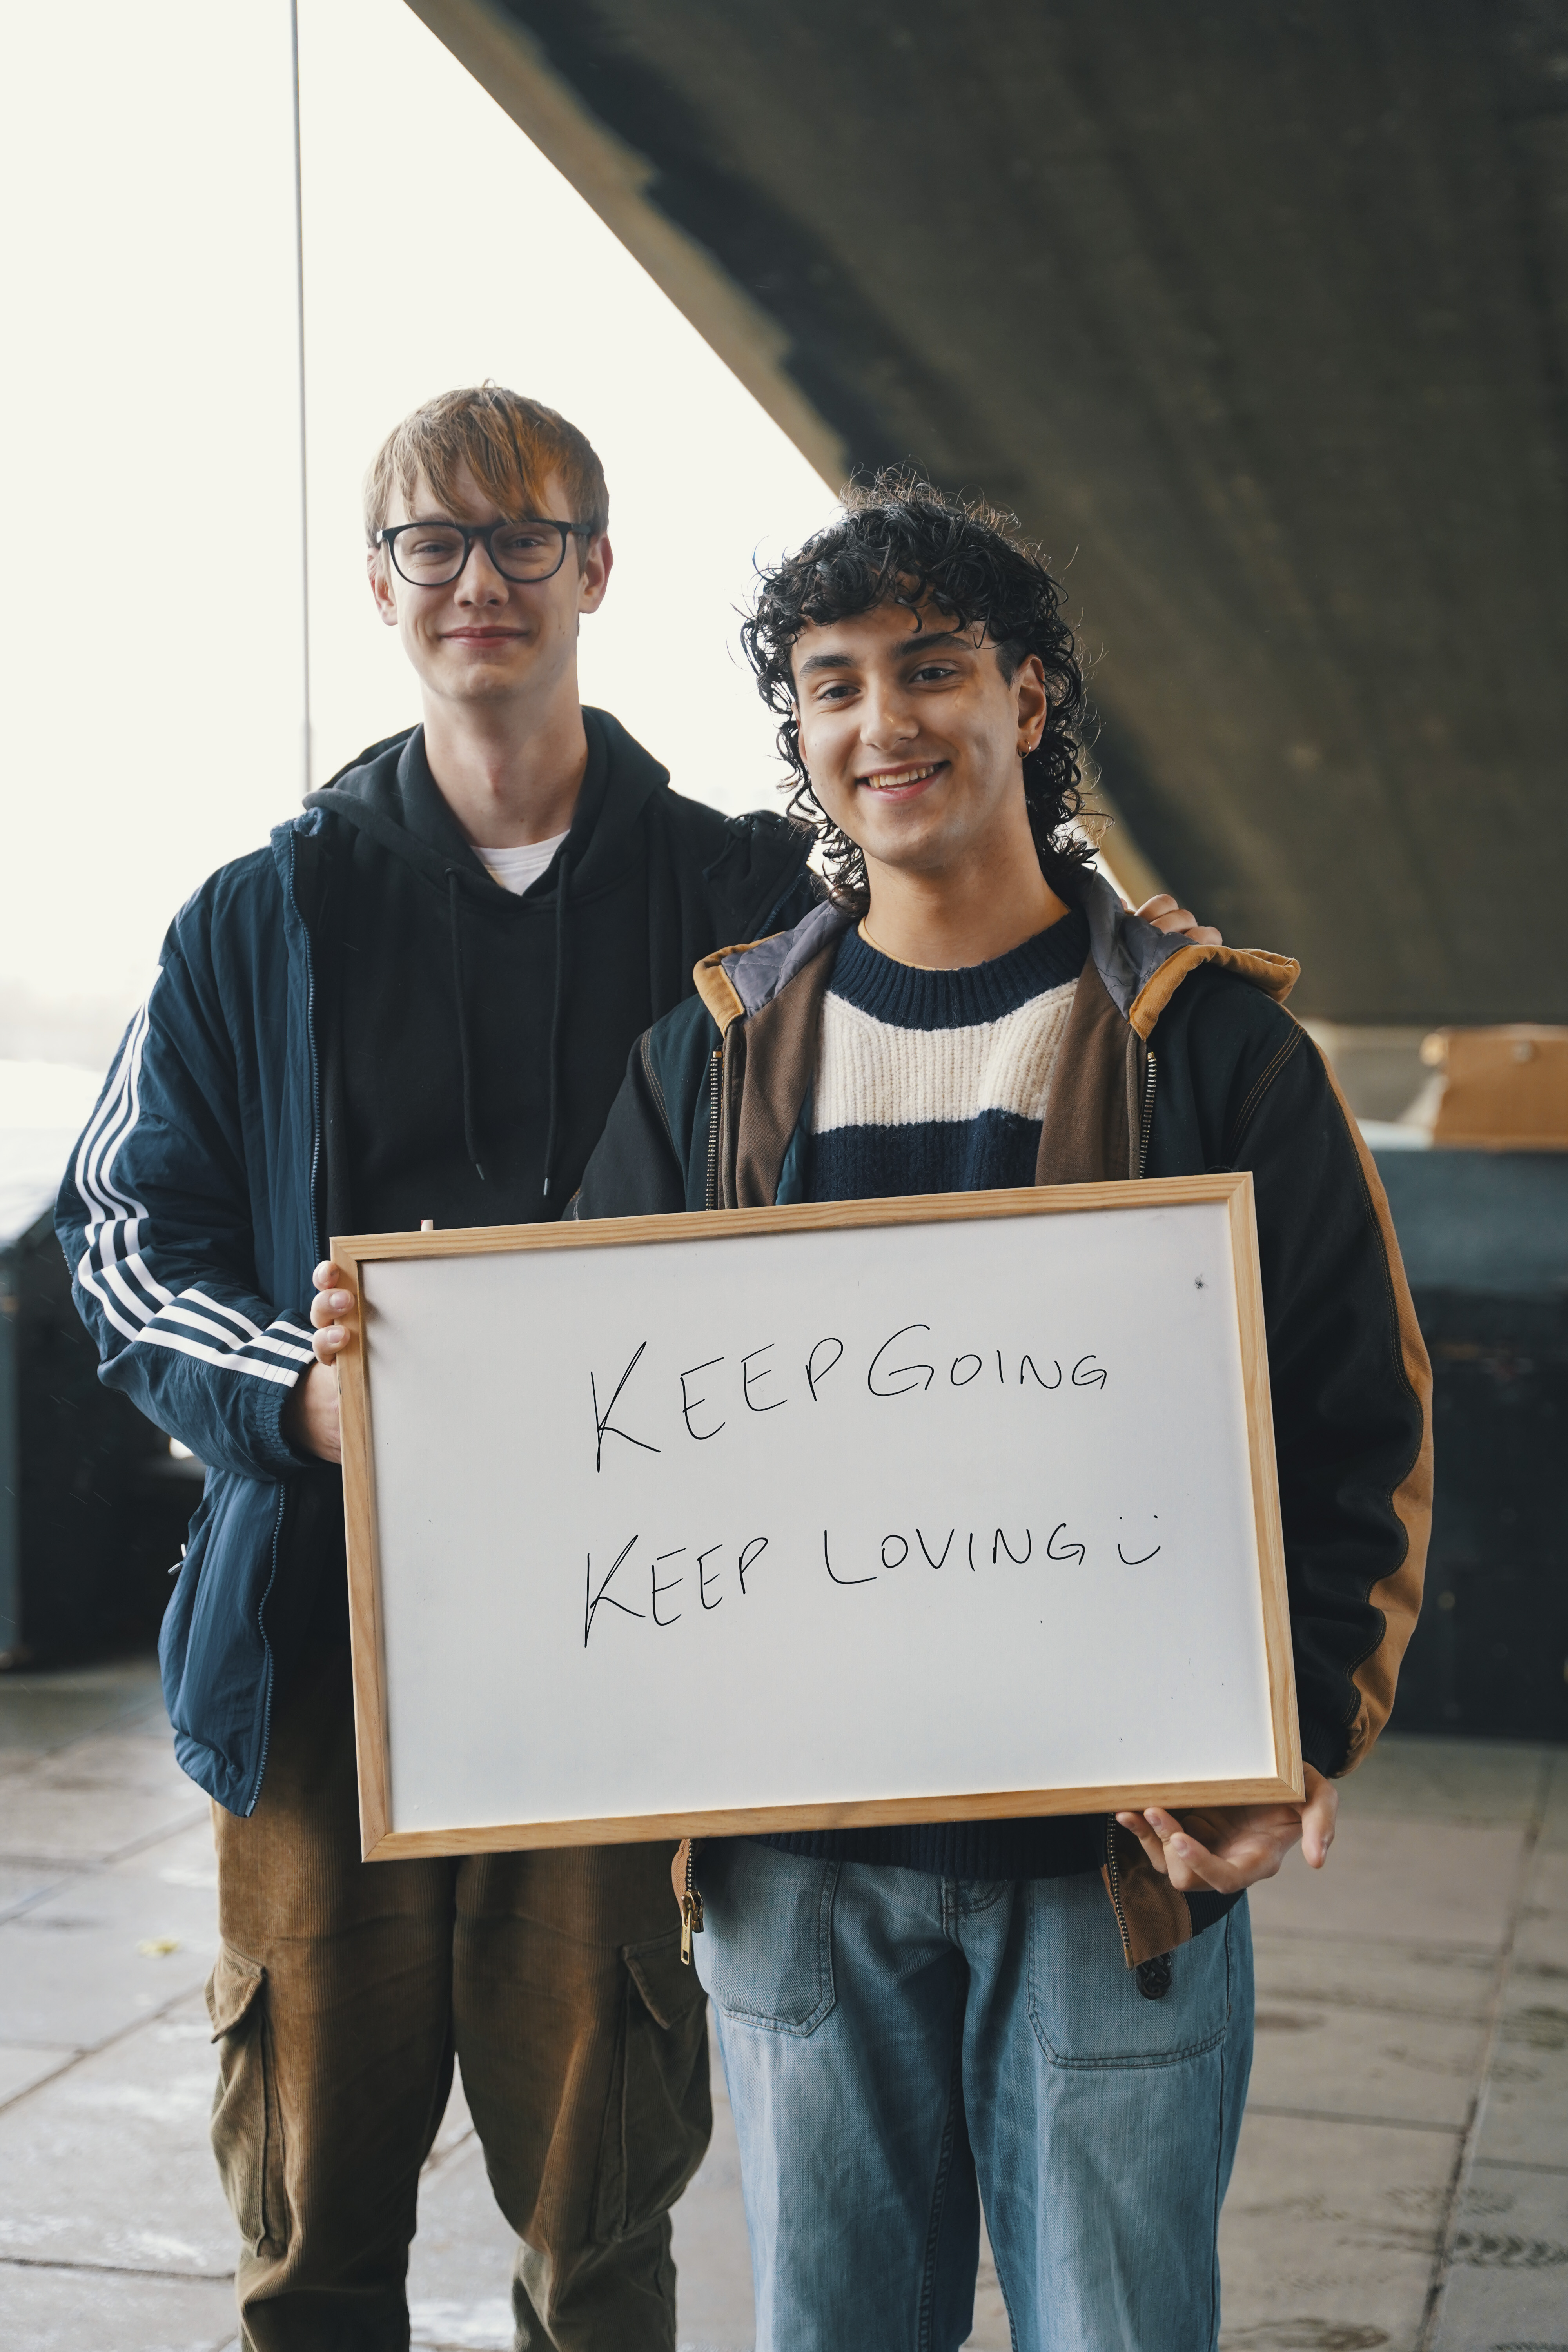 KEEP GOING
KEEP LOVING :)